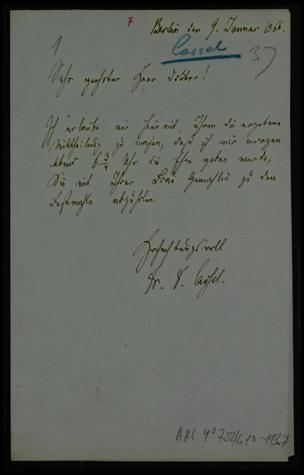 7
Berlin den 9. Januar 1866.
1
Cassel
37
Sehr geehrter Herr Doktor!
Ich erlaube mir hiermit, Ihnen die ergebene
Mittheilung zu machen, daß ich mir morgen
Abend 6 3/4 Uhr die Ehre geben werde,
Sie mit Ihrer Frau Gemahlin zu dem
Festmahle abzuholen.
Hochachtungsvoll
Dr. Cassel.
ARC 4°